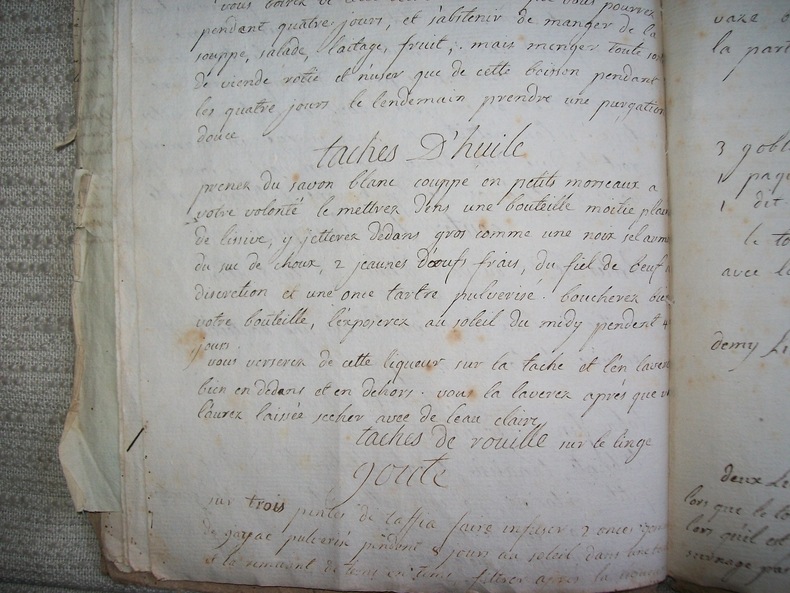 vous boirez de cette vous pourrez
pendent quatre jours, et s'abstenir de manger de la
souppe, salade, laitage, fruit, mais menger toute sorte
De viende rotie et n'user que de cette boisson pendant
les quatre jours le lendemain prendre une purgation
douce
taches D'huile
prenez du savon blanc couppé en petits morseaux a
votre volonté le mettrez dens une bouteille moitié plaine
de lissive, y jetterez dedans gros comme une noix sel armo
du suc de choux, 2 jeaunes d'œufs frais, du fiel de bœuf a
discretion et une once tartre pulverisé. boucherez bien
votre bouteille, l'exposerez au soleil du midy pendent 4
jours.
vous verserez de cette liqueur sur la tache et l'en laverez
bien en dedans et en dehors. vous la laverez aprés que v
l'aurez laissée secher avec de l'eau claire
taches de rouille sur le linge
goute
sur trois pintes de taffia faire infuser 2 onces gomme
de gayac pulverisé pendent 8 jours au soleil dans une
et la remuant de tems en tems filtrer apres la
vaze
la part
3 gobl
1 paqu
1 dit
le to
avec l
demy Li
deux Li
lors que le to
lors qu'il est